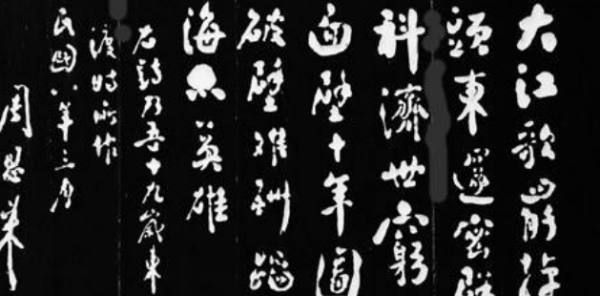 大江歌罷掉
頭東邃密群
科濟世窮
面壁十年圖
破壁難酬蹈
海亦英雄
右詩乃吾十九歲東
渡時所作
民國八年三月
周恩來